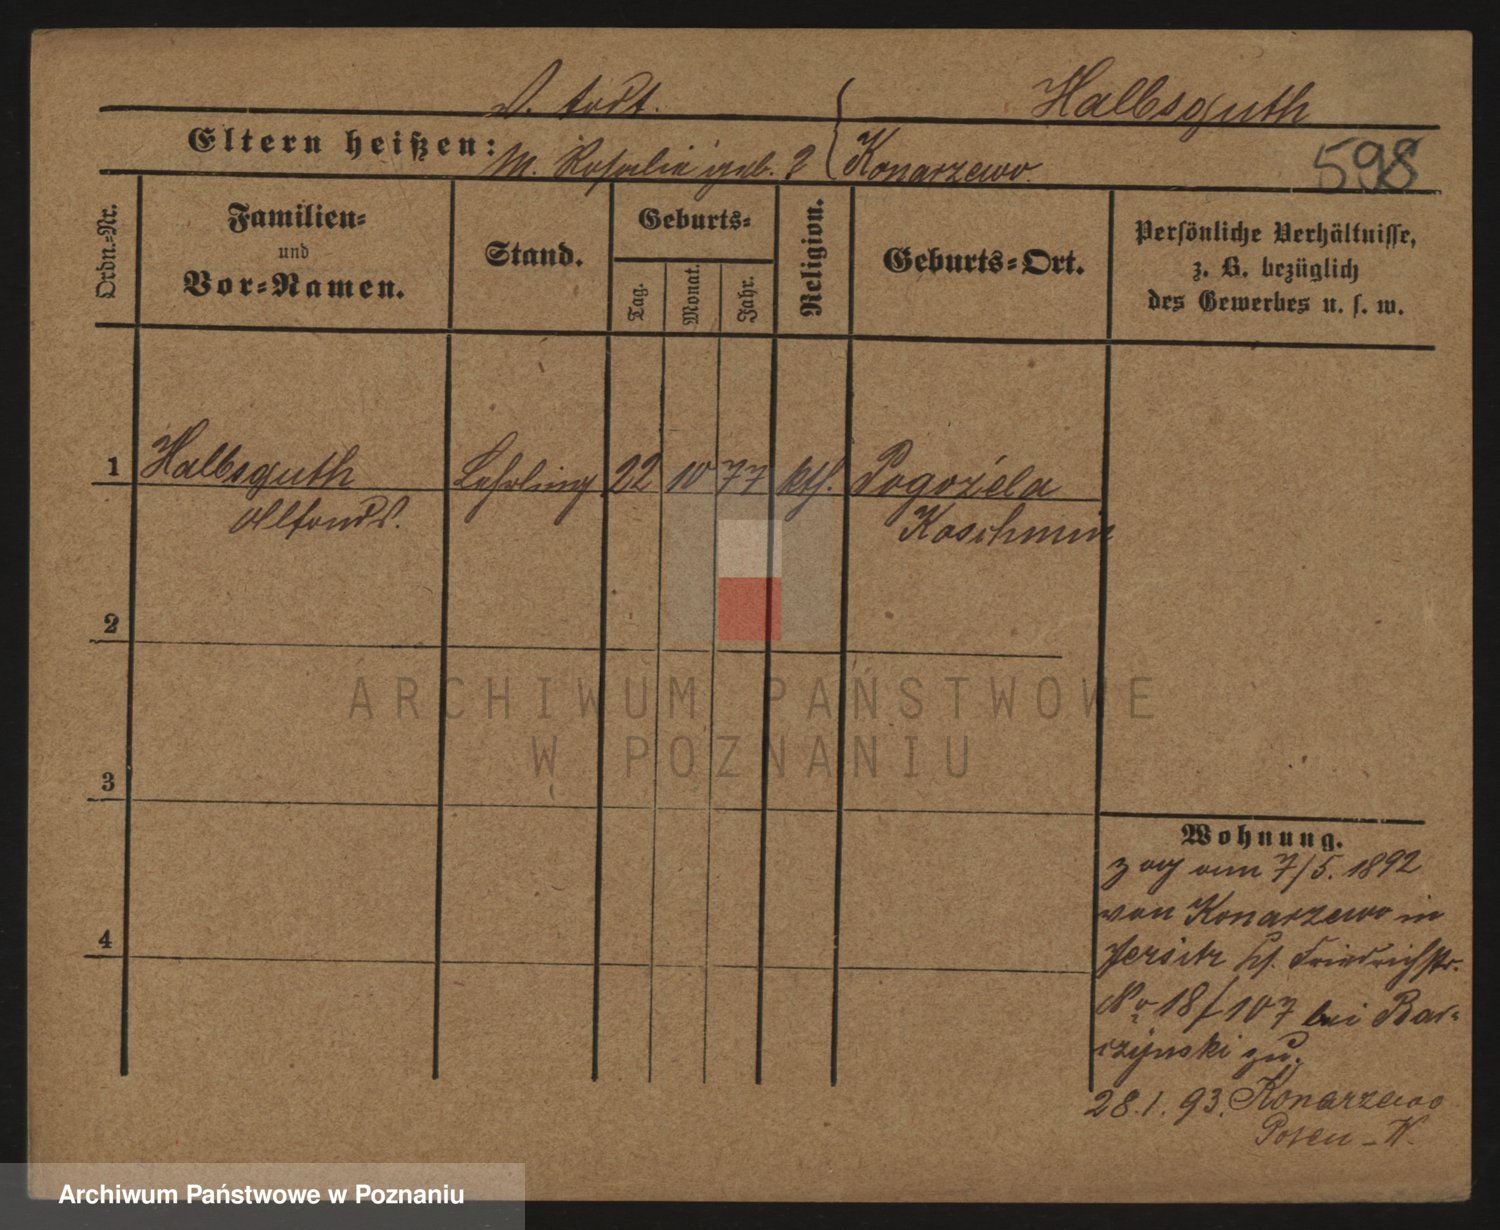 V. todt. Halbsguth
Eltern heißen:
M. Rosalie geb. ? Konarzewo.
598
Ordn.-Nr.
Familien-
und
Vor-Namen.
Stand.
Geburts-
Tag.
Monat.
Jahr.
Religion.
Geburts-Ort.
Persönliche Verhältnisse,
z. B. bezüglich
des Gewerbes u. s. w.
1 Halbsguth Lehrling 22 10 77 kth. Pogoźela
Alfons. Koschmin
2
3
4
Wohnung.
zog am 7/5. 1892
von Konarzewo in
Jersitz Friedrichstr.
No 18/107 bei Bar-
czynski zu.
28.1.93. Konarzewo
Posen-W.
ARCHIWUM PAŃSTWOWE
W POZNANIU
Archiwum Państwowe w Poznaniu